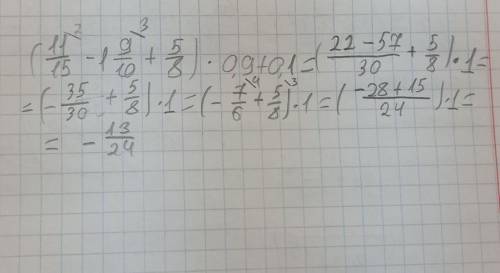 (11/15 \2 - 1 9/10 \3 + 5/8) · 0,9 + 0,1 = (22 - 57/30 + 5/8) · 1 =
= (- 35/30 + 5/8) · 1 = (- 7/6 \4 + 5/8 \3) · 1 = (-28 + 15/24) · 1 =
= - 13/24